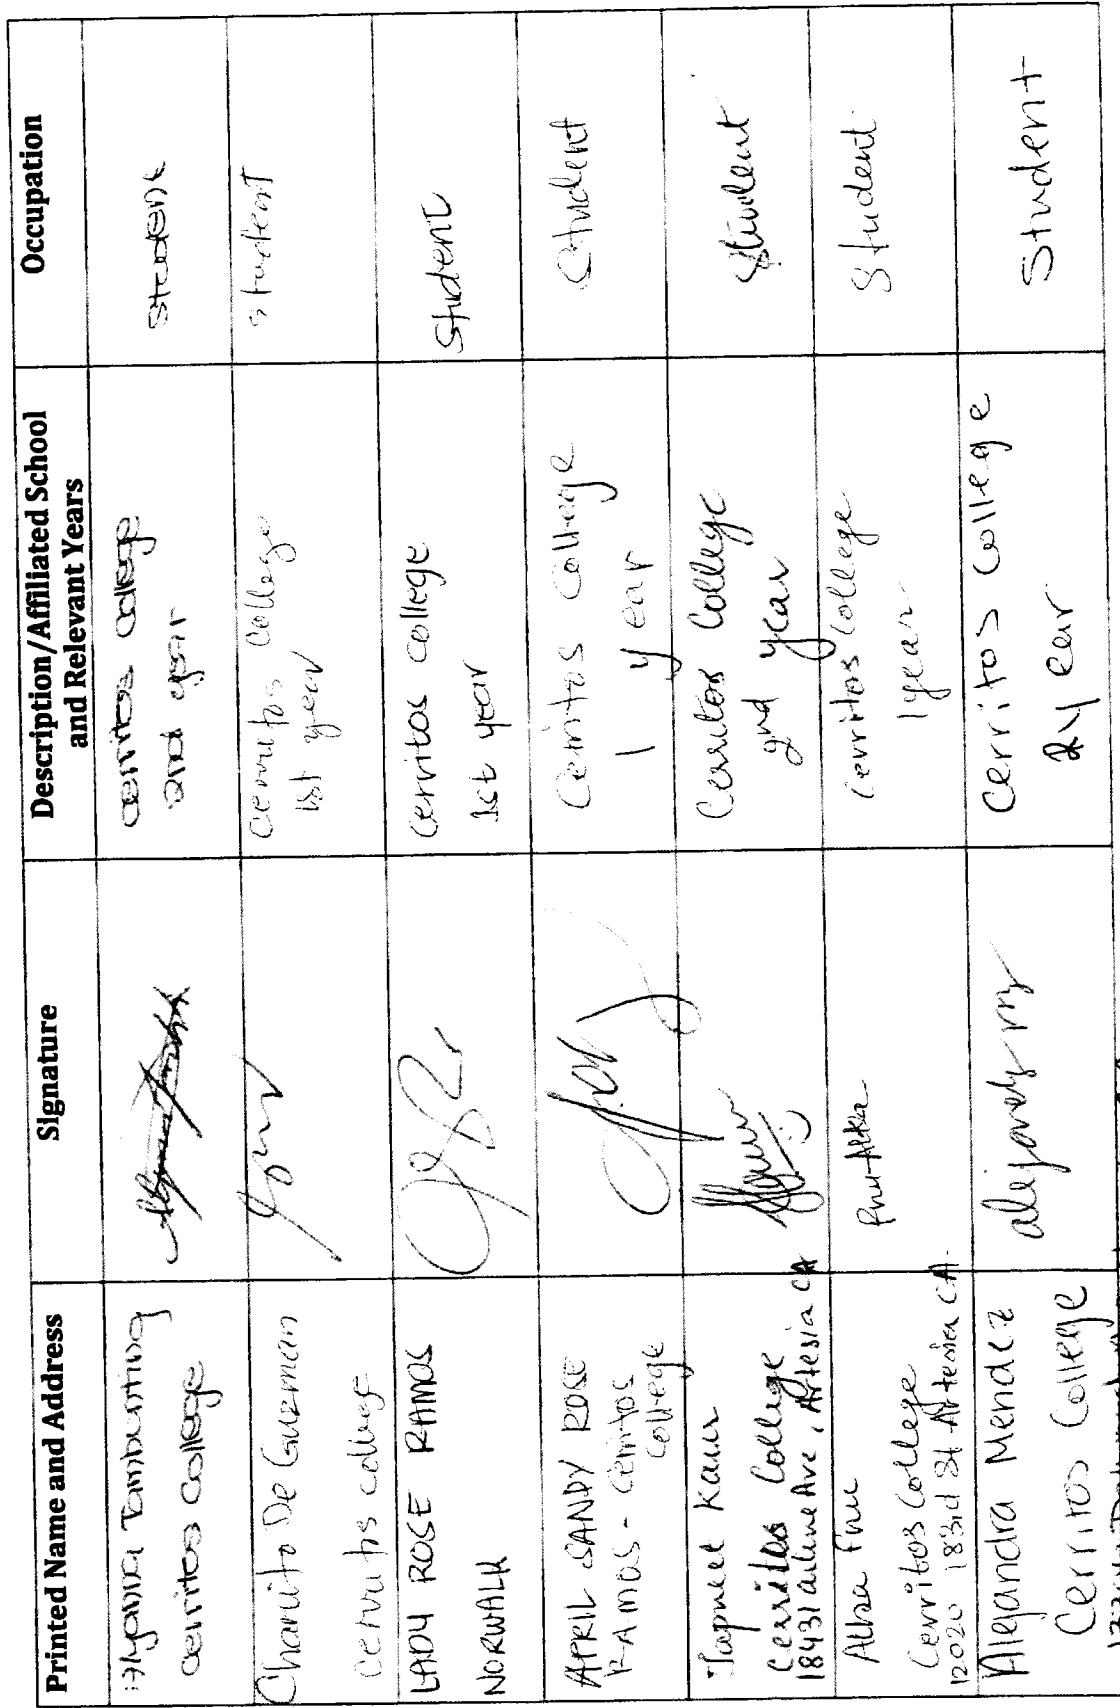 Printed Name and Address
Signature
Description/Affiliated School
and Relevant Years
Occupation
Tambunting
cerritos college
cerritos college
2nd year
student
Charito De Guzman
cerritos college
cerritos college
1st year
student
LADY ROSE RAMOS
NORWALK
cerritos college
1st year
student
APRIL SANDY ROSE
RAMOS - Cerritos
College
Cerritos College
1 year
Student
Kaur
Cerritos College
Ave, Artesia CA
Cerritos College
2nd year
Student
Cerritos College
12020 183rd St Artesia CA.
Cerritos College
1 year
Student
Alejandra Mendez
Cerritos College
Cerritos College
2 year
Student